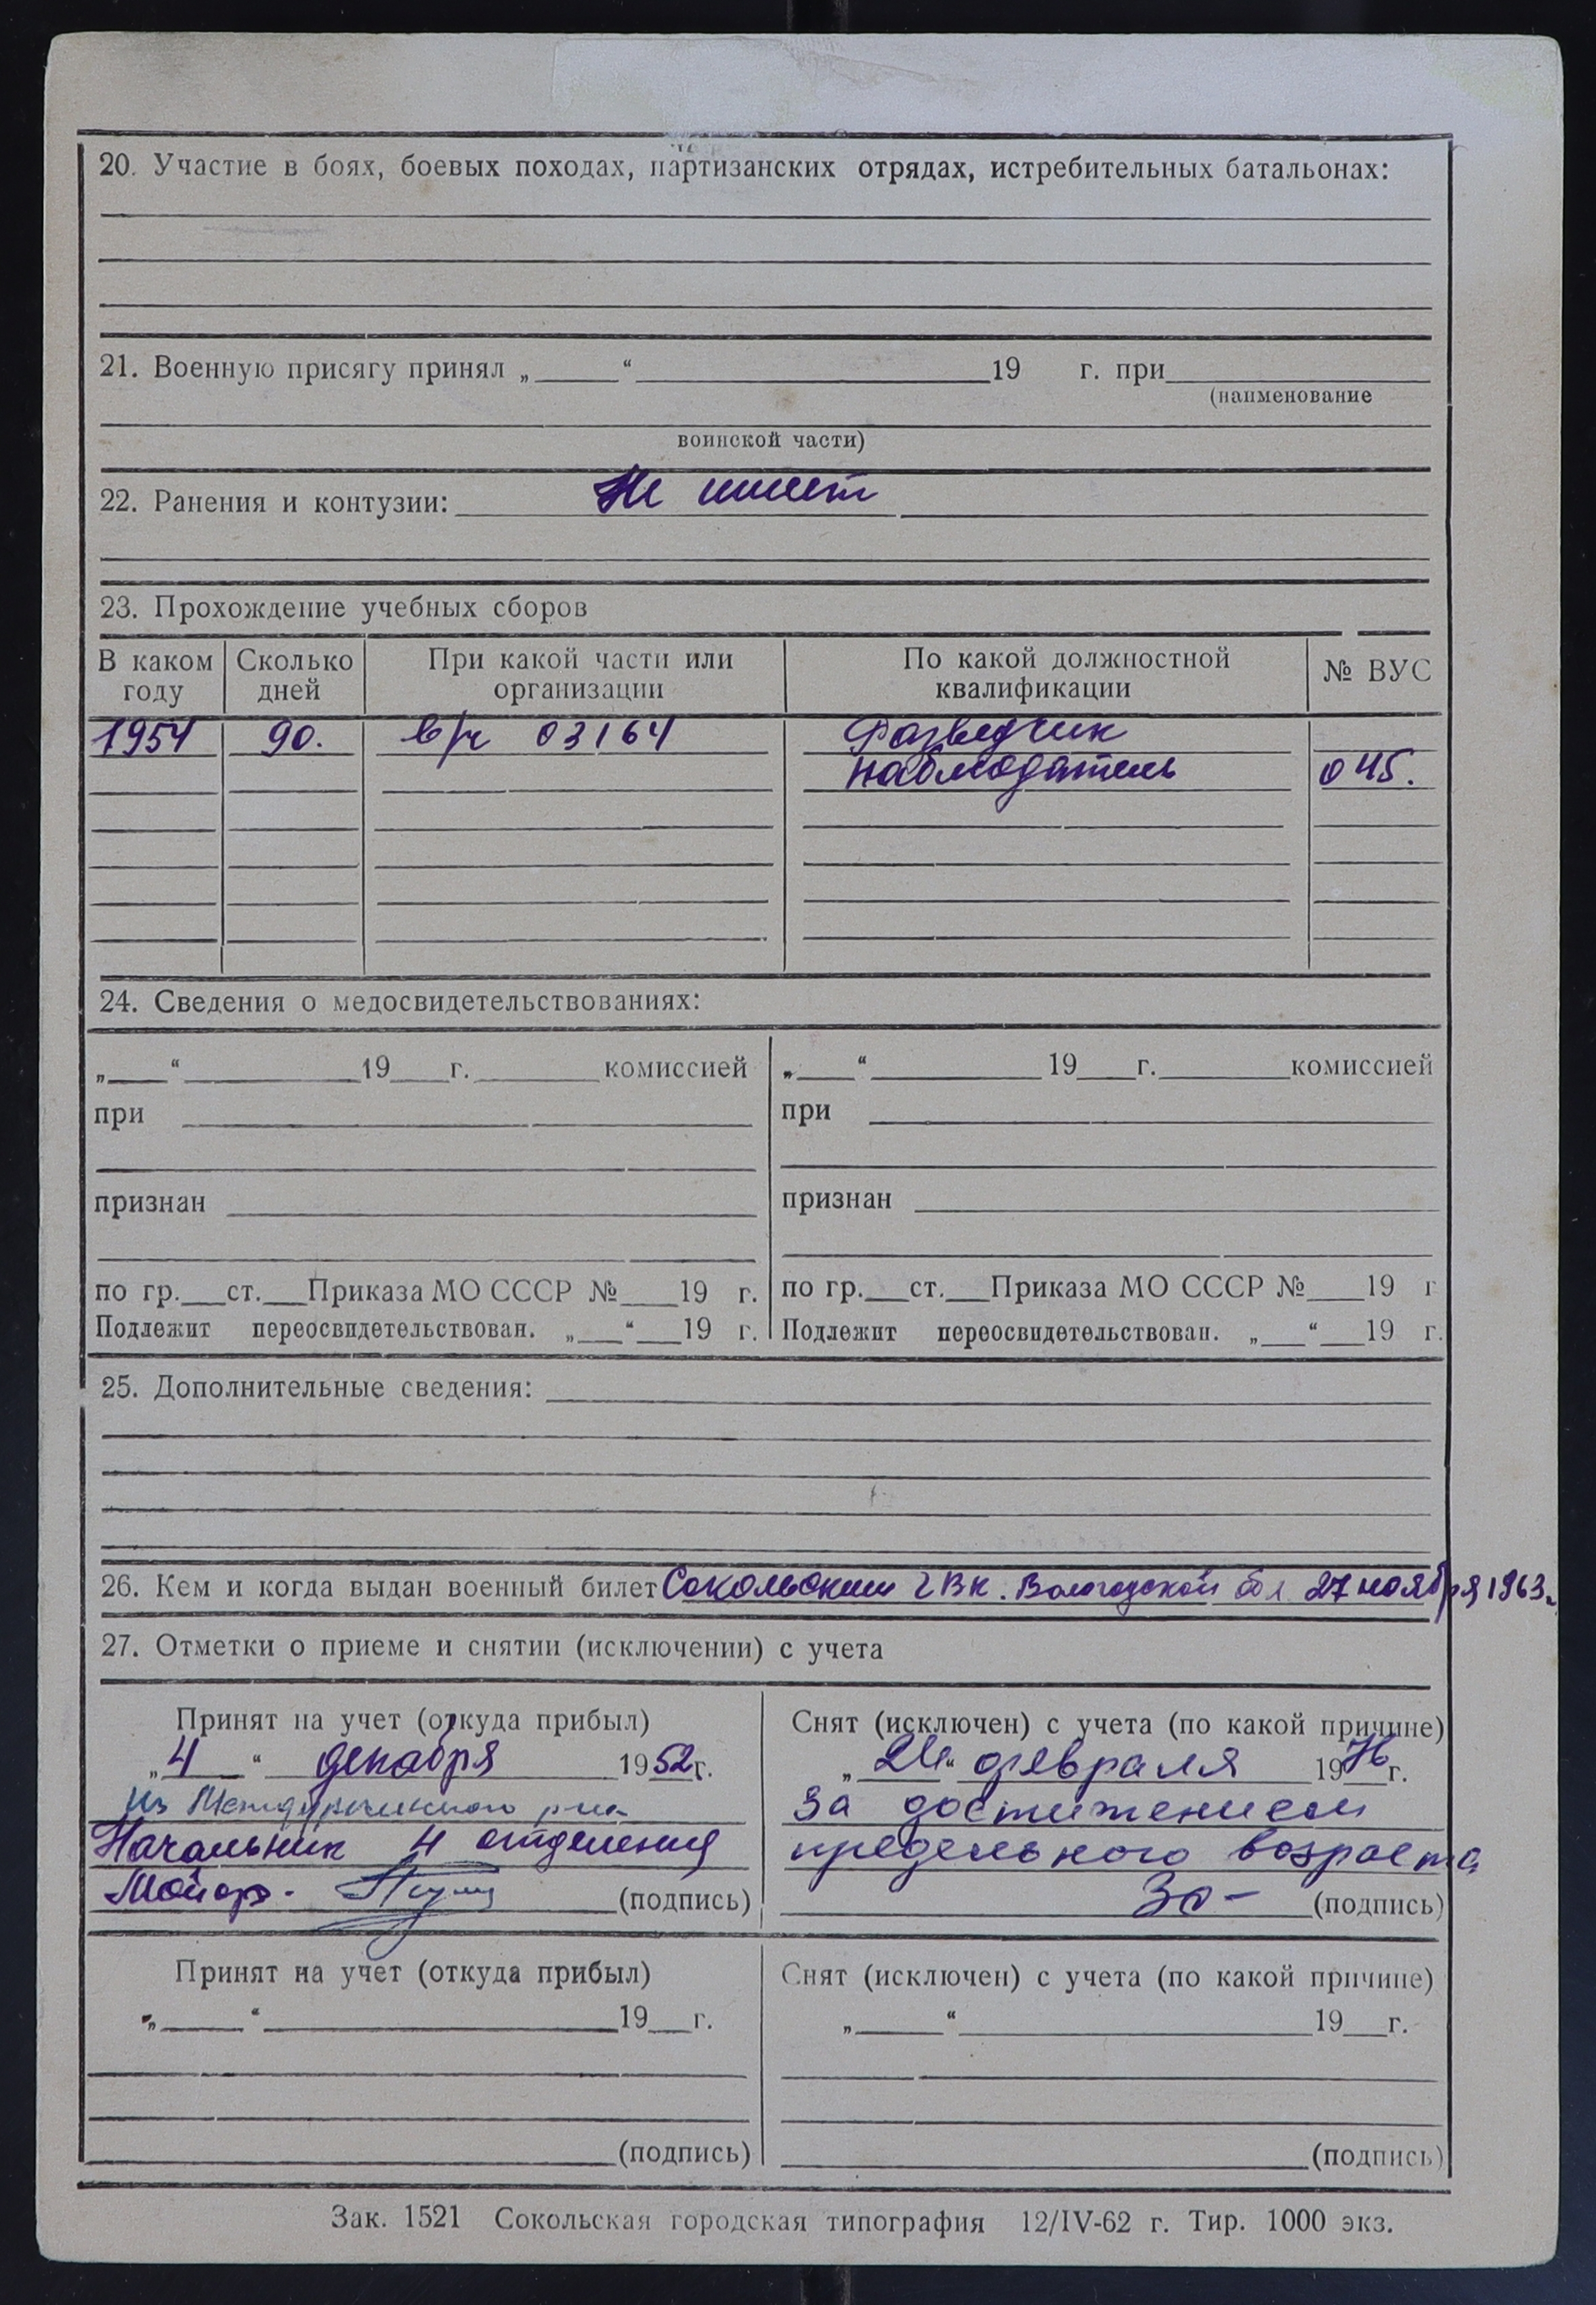 20. Участие в боях, боевых походах, партизанских отрядах, истребительных батальонах:
21. Военную присягу принял „ “ 19 г. при
(наименование
воинской части)
22. Ранения и контузии: Не имеет
23. Прохождение учебных сборов
В каком году Сколько дней При какой части или организации По какой должностной квалификации № ВУС
1954 90. в/ч 03164 Разведчик
наблюдатель 045.
24. Сведения о медосвидетельствованиях:
„ “ 19 г. комиссией
при
признан
по гр. ст. Приказа МО СССР № 19 г.
Подлежит переосвидетельствован. „ “ 19 г.
„ “ 19 г. комиссией
при
признан
по гр. ст. Приказа МО СССР № 19 г
Подлежит переосвидетельствован. „ “ 19 г.
25. Дополнительные сведения:
26. Кем и когда выдан военный билет Сокольским ГВК. Вологодской обл 27 ноября 1963г.
27. Отметки о приеме и снятии (исключении) с учета
Принят на учет (откуда прибыл)
„4“ декабря 1952г.
из Междуреченского
Начальник 4 отделения
Майор. (подпись)
Снят (исключен) с учета (по какой причине)
„24“ февраля 1976г.
За достижением
предельного возраста
(подпись)
Принят на учет (откуда прибыл)
„ “ 19 г.
(подпись)
Снят (исключен) с учета (по какой причине)
„ “ 19 г.
(подпись)
Зак. 1521 Сокольская городская типография 12/IV-62 г. Тир. 1000 экз.